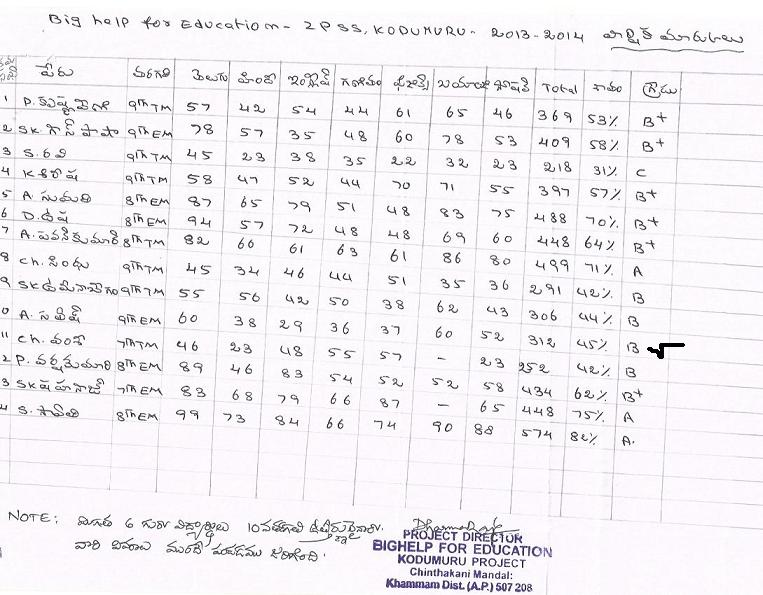 Big help for Education - ZPSS, KODUMURU - 2013-2014 వార్షిక మార్కులు
క్రమ సంఖ్య పేరు తరగతి తెలుగు హిందీ ఇంగ్లీష్ గణితం ఫిజిక్స్ బయాలజీ సోషల్ Total శాతం గ్రేడు
1 P. కృష్ణవేణి 9th TM 57 42 54 44 61 65 46 369 53% B+
2 SK. గౌస్ పాషా 9th EM 78 57 35 48 60 78 53 409 58% B+
3 S. రవి 9th TM 45 23 38 35 22 32 23 218 31% C
4 K శిరీష 9th TM 58 47 52 44 70 71 55 397 57% B+
5 A. సుమతి 8th EM 87 65 79 51 48 83 75 488 70% B+
6 D. ఉష 8th EM 94 57 72 48 48 69 60 448 64% B+
7 A. పవన్ కుమార్ 8th TM 82 66 61 63 61 86 80 499 71% A
8 Ch. సింధు 9th TM 45 34 46 44 51 35 36 291 42% B
9 SK 9th TM 55 56 42 50 38 62 43 306 44% B
0 A. 9th EM 60 38 29 36 37 60 52 312 45% B
11 Ch. వంశీ 7th TM 46 23 48 55 57 - 23 252 42% B
2 P. వర్షకుమారి 8th EM 89 46 83 54 52 52 58 434 62% B+
3 SK షహనాజ్ 7th EM 83 68 79 66 87 - 65 448 75% A
4 S. 8th EM 99 73 84 66 74 90 88 574 82% A.
NOTE: మిగతా 6 గురు విద్యార్థులు 10వ తరగతి ఉత్తీర్ణులైనారు.
వారి వివరాలు ముందే పంపడము జరిగింది.
PROJECT DIRECTOR
BIGHELP FOR EDUCATION
KODUMURU PROJECT
Chinthakani Mandal:
Khammam Dist. (A.P.) 507 208